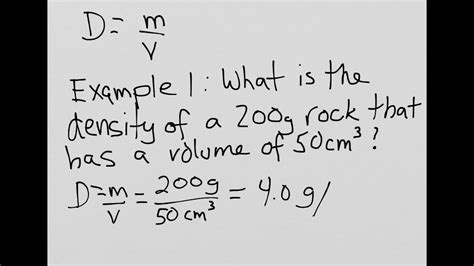 D = m/V
Example 1: What is the
density of a 200g rock that
has a volume of 50cm³?
D = m/V = 200g/50cm³ = 4.0 g/